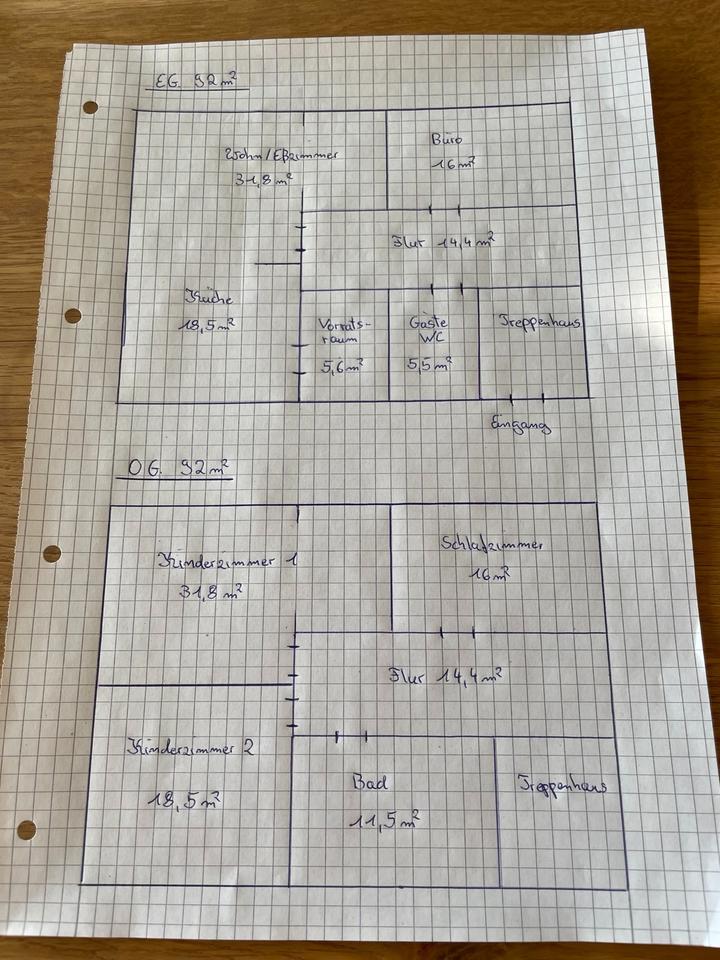 EG. 92 m²
Wohn/Eßzimmer
31,8 m²
Büro
16 m²
Flur 14,4 m²
Küche
18,5 m²
Vorrats-
raum
5,6 m²
Gäste
WC
5,5 m²
Treppenhaus
Eingang
OG. 92 m²
Kinderzimmer 1
31,8 m²
Schlafzimmer
16 m²
Flur 14,4 m²
Kinderzimmer 2
18,5 m²
Bad
11,5 m²
Treppenhaus